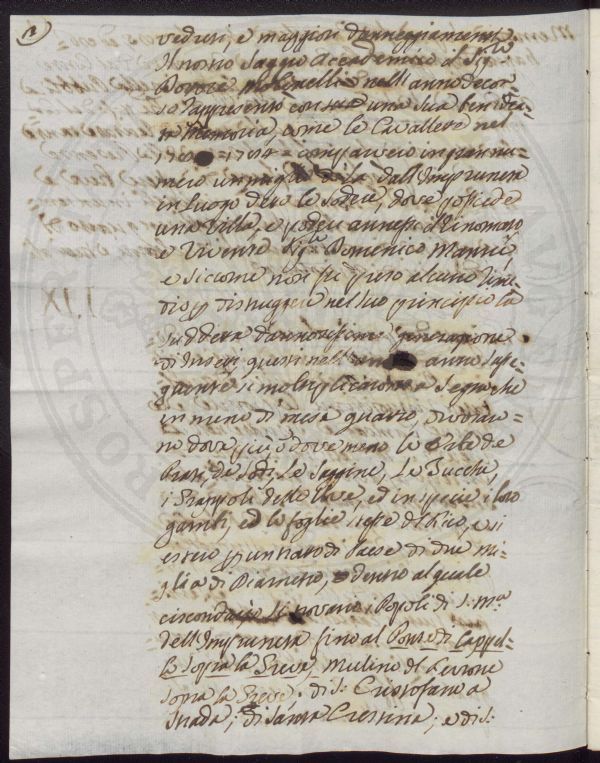 vedersi, e maggiori danneggiamenti.
Il nostro Saggio Accademico il Sig.re
Dottore nell'anno decor-
so rappresentò con una sua ben idea-
ta Memoria, come le Cavallette nel
1784 comparvero in gran nu-
mero un miglio di là dall'Impruneta
in luogo detto le Sodere, dove possiede
una Villa, e poderi annessi il Rinomato
e Vivente Sig.re Domenico Manni,
e siccome non fu preso alcuno rime-
dio p distruggere nel suo principio la
suddetta dannosissima generazione
di Insetti, questi nell' anno susse-
guente si moltiplicarono a segno che
in meno di mesi quattro, divoraro-
no dove più, e dove meno le erbe de
Prati, de Sodi, le Saggine, le Zucche,
i Grappoli delle Uve, ed in specie i loro
gambi, ed le foglie istesse del Fico, e si
estero p un tratto di Paese di due mi-
glia di Diametro, e dentro al quale
circondario si trovano i Popoli di S: M.a
dell'Impruneta fino al Ponte di Cappel-
lo sopra la Greve, Mulino di
sopra la Greve. di S: Cristofano a
Strada; di Santa Cristina; e di S: